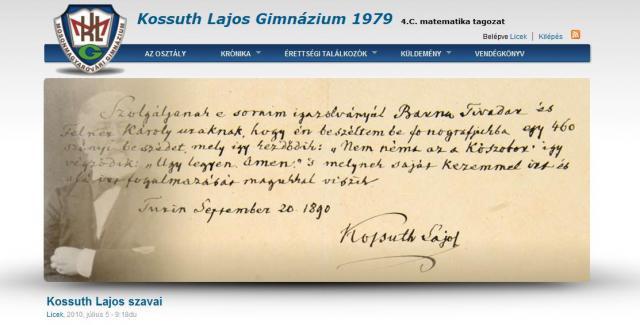 Kossuth Lajos Gimnázium 1979 4.C. matematika tagozat
Belépve Licek | Kilépés
AZ OSZTÁLY KRÓNIKA ÉRETTSÉGI TALÁLKOZÓK KÜLDEMÉNY VENDÉGKÖNYV
MOSONMAGYARÓVÁRI GIMNÁZIUM
Szolgáljanak e soraim igazolványál Barna Tivadar és
Felner Károly uraknak, hogy én beszéltem be fonografjukba egy 460
szónyi beszédet, mely így kezdődik: „Nem néma az a kőszobor" így
végződik: „Ugy legyen. Amen." 's melynek saját kezemmel írt és
aláírt fogalmazását magukkal viszik
Turin September 20 1890
Kossuth Lajos
Kossuth Lajos szavai
Licek, 2010, július 5 - 9:18du